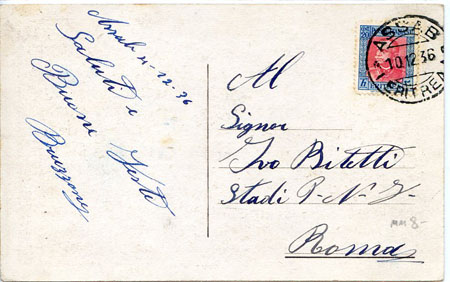 Assab 4-12-36
Saluti e
Buone Feste
ASSAB
10.12.36
ERITREA
Al
Signor
Ivo Bitetti
Stadi P-N-F-
Roma
MM 8-